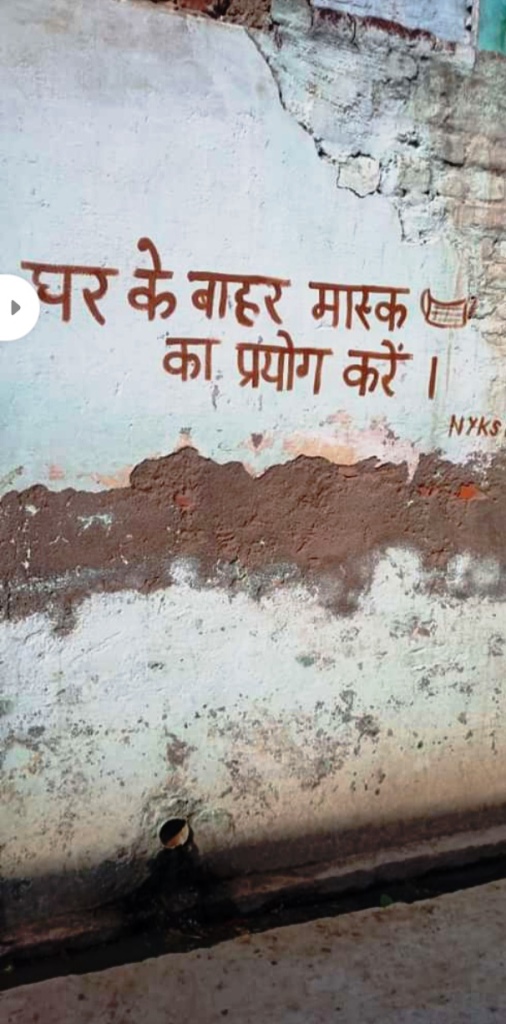 घर के बाहर मास्क
का प्रयोग करें ।
NYKS